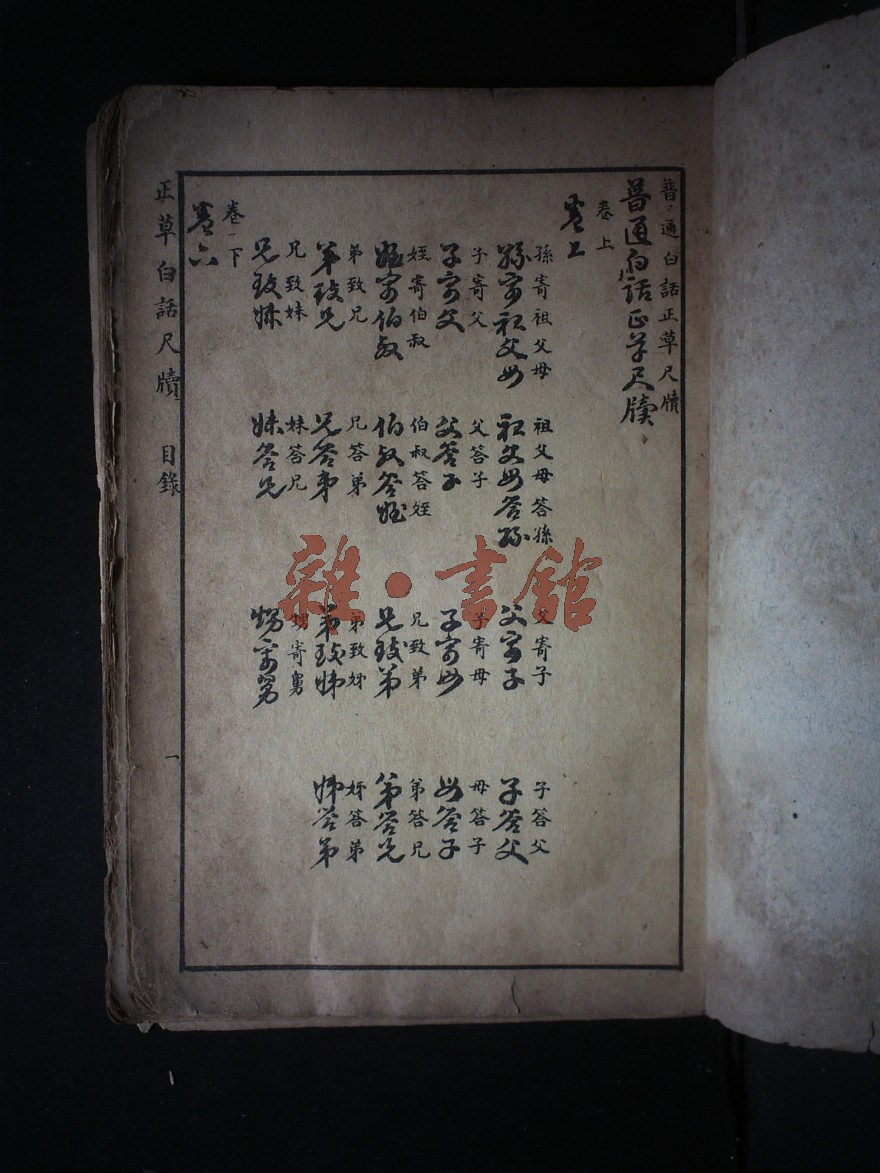 普通白話正草尺牘
普通白話正草尺牘
卷上
卷上
孫寄祖父母 祖父母答孫 父寄子 子答父
孫寄祖父母 祖父母答孫 父寄子 子答父
子寄父 父答子 子寄母 母答子
子寄父 父答子 子寄母 母答子
姪寄伯叔 伯叔答姪 兄致弟 弟答兄
姪寄伯叔 伯叔答姪 兄致弟 弟答兄
弟致兄 兄答弟 弟致姊 姊答弟
弟致兄 兄答弟 弟致姊 姊答弟
兄致妹 妹答兄 甥寄舅
兄致妹 妹答兄 甥寄舅
卷下
卷下
正草白話尺牘 目錄 一
雜·書館